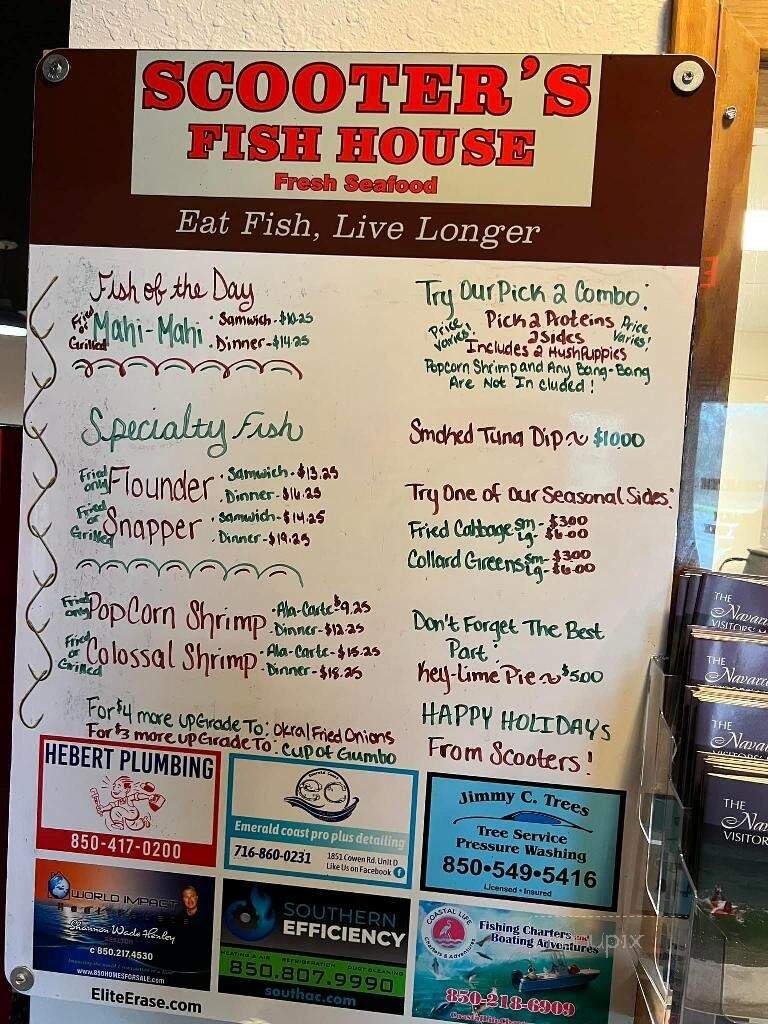 SCOOTER'S
FISH HOUSE
Fresh Seafood
Eat Fish, Live Longer
Fish of the Day
Fried or Grilled Mahi-Mahi
· Samwich - $10.25
· Dinner - $14.25
Specialty Fish
Fried only Flounder
· Samwich - $13.25
· Dinner - $16.25
Fried or Grilled Snapper
· Samwich - $14.25
· Dinner - $19.25
Fried only PopCorn Shrimp
· Ala-Carte $9.25
· Dinner - $12.25
Fried or Grilled Colossal Shrimp
· Ala-Carte - $15.25
· Dinner - $18.25
For $4 more upGrade To: Okra|Fried Onions
For $3 more upGrade To: Cup of Gumbo
Try Our Pick 2 Combo:
Price varies! Pick 2 Proteins Price Varies!
2 Sides
Includes 2 HushPuppies
Popcorn Shrimp and Any Bang-Bang
Are Not Included!
Smoked Tuna Dip ~ $10.00
Try One of Our Seasonal Sides:
Fried Cabbage sm - $3.00
Lg - $6.00
Collard Greens sm - $3.00
Lg - $6.00
Don't Forget The Best
Part:
Key-Lime Pie ~ $5.00
HAPPY HOLIDAYS
From Scooters!
HEBERT PLUMBING
850-417-0200
Emerald coast pro plus detailing
716-860-0231
1851 Cowen Rd. Unit D
Like Us on Facebook f
Jimmy C. Trees
Tree Service
Pressure Washing
850•549•5416
Licensed • Insured
WORLD IMPACT
Shannon Wade Henley
REALTOR
c 850.217.4530
www.850HOMESFORSALE.com
SOUTHERN
EFFICIENCY
HEATING & AIR REFRIGERATION DUCT CLEANING
850.807.9990
southac.com
COASTAL LIFE
CHARTERS & ADVENTURES
Fishing Charters and
Boating Adventures
850-218-6909
EliteErase.com
THE
Navarre
VISITORS'
THE
Navarr
THE
Navar
THE
Nava
VISITOR
pix